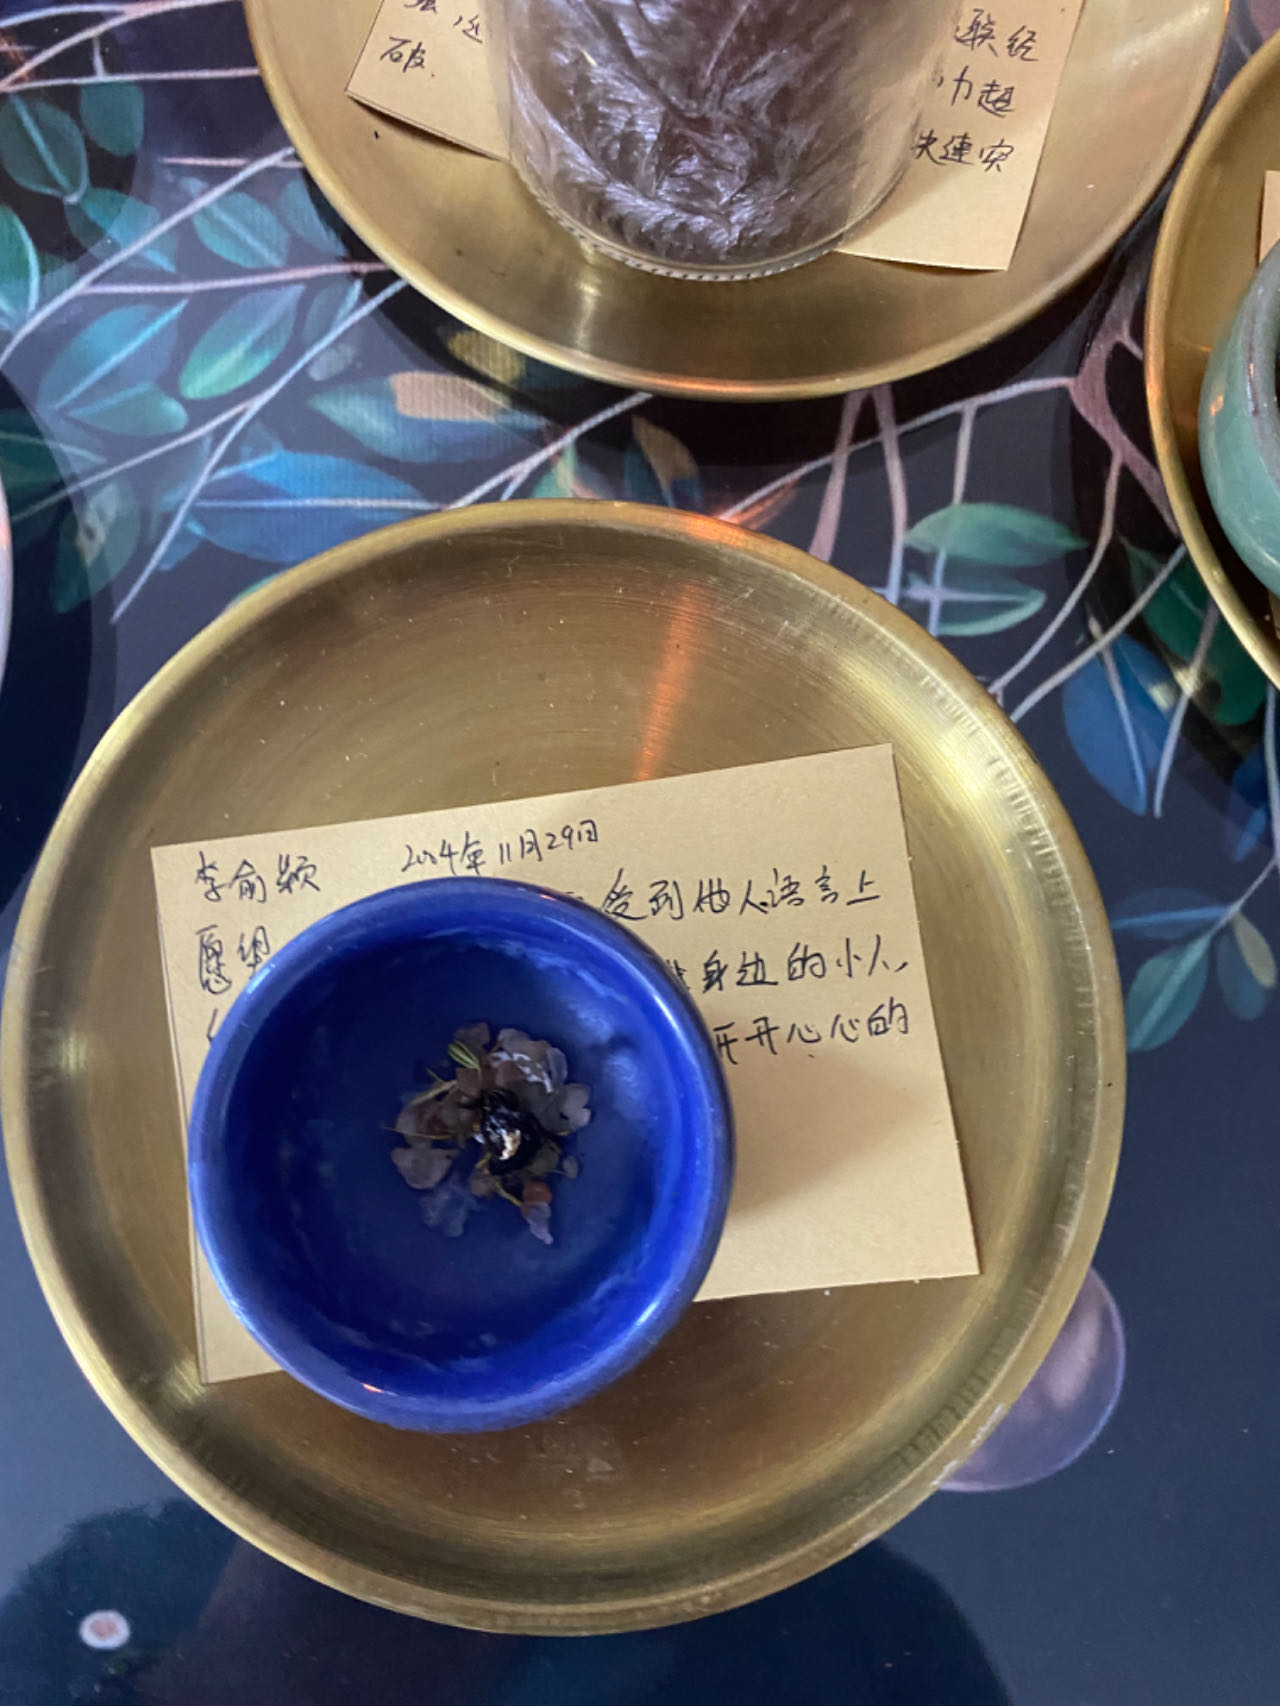 破
联经
力超
快速突
李俞颖 2004年11月29日
愿望 受到他人语言上
身边的小人,
开开心心的